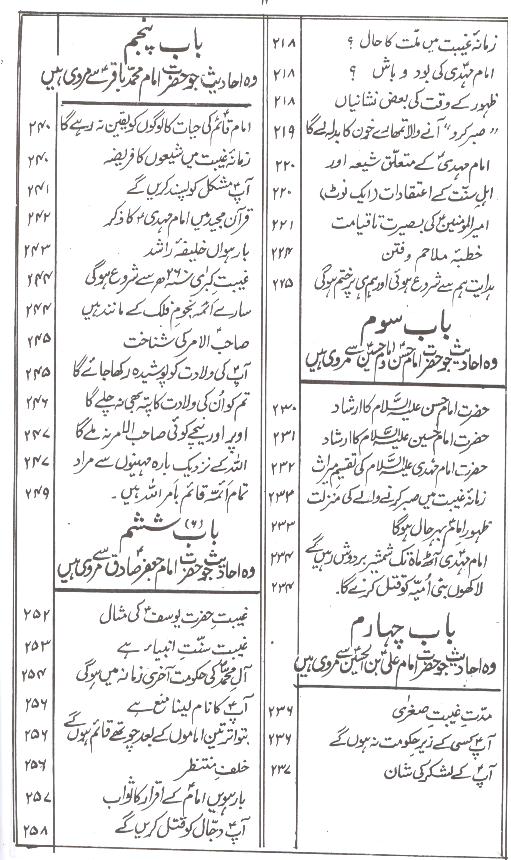 ۱۲
زمانۂ غیبت میں ملّت کا حال ؟ ۲۱۸
امام مہدیؑ کی بود و باش ؟ ۲۱۸
ظہور کے وقت کی بعض نشانیاں ۲۱۸
”صبر کرو“ آنے والا تمہارے خون کا بدلہ لے گا ۲۱۹
امام مہدیؑ کے متعلق شیعہ اور ۲۲۰
اہلِ سنّت کے اعتقادات (ایک نوٹ) ۲۲۰
امیرالمومنینؑ کی بصیرت تا قیامت ۲۲۱
خطبۂ ملاحم و فتن ۲۲۴
ہدایت ہم سے شروع ہوئی اور ہم ہی پر ختم ہوگی ۲۲۵
باب سوم
وہ احادیث جو حضرت امام حسنؑ و امام حسینؑ سے مروی ہیں
حضرت امام حسن علیہ السّلام کا ارشاد ۲۳۰
حضرت امام حسین علیہ السّلام کا ارشاد ۲۳۱
حضرت امام مہدی علیہ السّلام کی تقسیمِ میراث ۲۳۲
زمانۂ غیبت میں صبر کرنے والے کی منزلت ۲۳۳
ظہورِ امامؑ بہرحال ہوگا ۲۳۳
امام مہدیؑ آٹھ ماہ تک شمشیر بردوش رہیں گے ۲۳۴
لاکھوں بنی اُمیہ کو قتل کریں گے۔ ۲۳۴
باب چہارم
وہ احادیث جو حضرت امام علیؑ بن الحسینؑ سے مروی ہیں
مدّتِ غیبتِ صغریٰ ۲۳۶
آپؑ کسی کے زیرِ حکومت نہ ہوں گے ۲۳۶
آپؑ کے لشکر کی شان ۲۳۷
باب پنجم
وہ احادیث جو حضرت امام محمد باقرؑ سے مروی ہیں
امام قائمؑ کی حیات کا لوگوں کو یقین نہ رہے گا ۲۴۰
زمانۂ غیبت میں شیعوں کا فریضہ ۲۴۰
آپؑ مشکل کو پسند کریں گے ۲۴۱
قرآن مجید میں امام مہدیؑ کا ذکر ۲۴۲
بارہواں خلیفۂ راشد ۲۴۳
غیبتِ کبریٰ ۲۶۰ھ سے شروع ہوگی ۲۴۴
سارے ائمہ نجومِ فلک کے مانند ہیں ۲۴۴
صاحب الامر کی شناخت ۲۴۵
آپؑ کی ولادت کو پوشیدہ رکھا جائے گا ۲۴۵
تم کو اُن کی ولادت کا پتہ بھی نہ چلے گا ۲۴۶
اوپر اور نیچے کوئی صاحب الامر نہ ملے گا ۲۴۷
اللہ کے نزدیک بارہ مہینوں سے مراد ۲۴۷
تمام ائمہ قائم بامر اللہ ہیں۔ ۲۴۹
باب (۶) ششم
وہ احادیث جو حضرت امام جعفر صادقؑ سے مروی ہیں
غیبتِ حضرت یوسفؑ کی مثال ۲۵۲
غیبت سنّتِ انبیاء ہے ۲۵۳
آلِ محمدؐ کی حکومت آخری زمانہ میں ہوگی ۲۵۴
آپؑ کا نام لینا منع ہے ۲۵۶
بتواتر تین اماموں کے بعد چوتھے قائم ہوں گے ۲۵۶
خلفِ منتظر ۲۵۶
بارہویں امامؑ کے اقرار کا ثواب ۲۵۷
آپؑ دجّال کو قتل کریں گے ۲۵۸